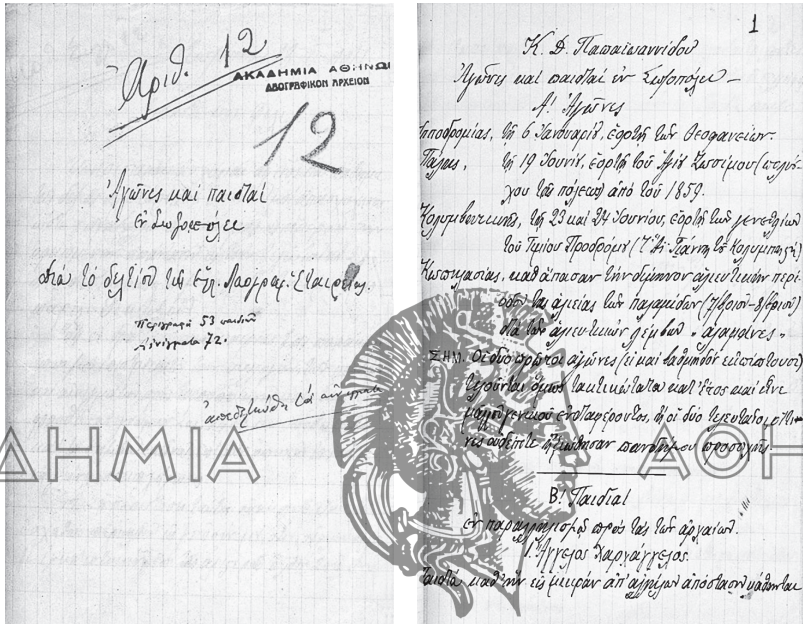 Ἀριθ. 12
ΑΚΑΔΗΜΙΑ ΑΘΗΝΩ
ΛΑΟΓΡΑΦΙΚΟΝ ΑΡΧΕΙΟΝ
12
Ἀγῶνες καὶ παιδιαὶ
ἐν Σωζοπόλει
διὰ τὸ δελτίον τῆς Ἑλ. Λαογραφ. Ἑταιρείας.
Περιγραφὴ 53 παιδιῶν
Αἰνίγματα 72.
ἀπεδελτιώθη τὰ αἰνίγματα
1
Κ. Δ. Παπαϊωαννίδου
Ἀγῶνες καὶ παιδιαὶ ἐν Σωζοπόλει –
Α! Ἀγῶνες
Ἱπποδρομίας, τῇ 6 Ἰανουαρίου, ἑορτῇ τῶν Θεοφανείων.
Πάλης, τῇ 19 Ἰουνίου, ἑορτῇ τοῦ Ἁγίου Ζωσίμου (πολιού-
χου τῆς πόλεως) ἀπὸ τοῦ 1859.
Κολυμβητικῆς, τῇ 23 καὶ 24 Ἰουνίου, ἑορτῇ τῶν γενεθλίων
τοῦ Τιμίου Προδρόμου (Τ' Ἅη Γιάννη τ
Κωπηλασίας, καθ' ἅπασαν τὴν δίμηνον ἁλιευτικὴν περί-
οδον τῆς ἁλιείας τῶν παλαμίδων (7/βρίου-8/βρίου)
διὰ τῶν ἁλιευτικῶν λέμβων "ἀλαμάνες"
ΣΗΜ. Οἱ δύο πρῶτοι ἀγῶνες (εἰ καὶ βαθμηδὸν ἐκπίπτουσι)
τελοῦνται ὅμως τακτικώτατα κατ' ἔτος καὶ εἶνε
μᾶλλον γενικοῦ ἐνδιαφέροντος, ἢ οἱ δύο τελευταῖοι, οἵτι-
νες οὐδέποτε ἠξιώθησαν πανδήμου προσοχῆς.
Β! Παιδιαὶ
ἐν παραλληλισμῷ πρὸς τὰς τῶν ἀρχαίων.
1. Ἄγγελος Χαρχάγγελος.
Παιδιά καθ' ἣν εἰς μικρὰν ἀπ' ἀλλήλων ἀπόστασιν κάθηνται
ΔΗΜΙΑ
ΑΘΗ